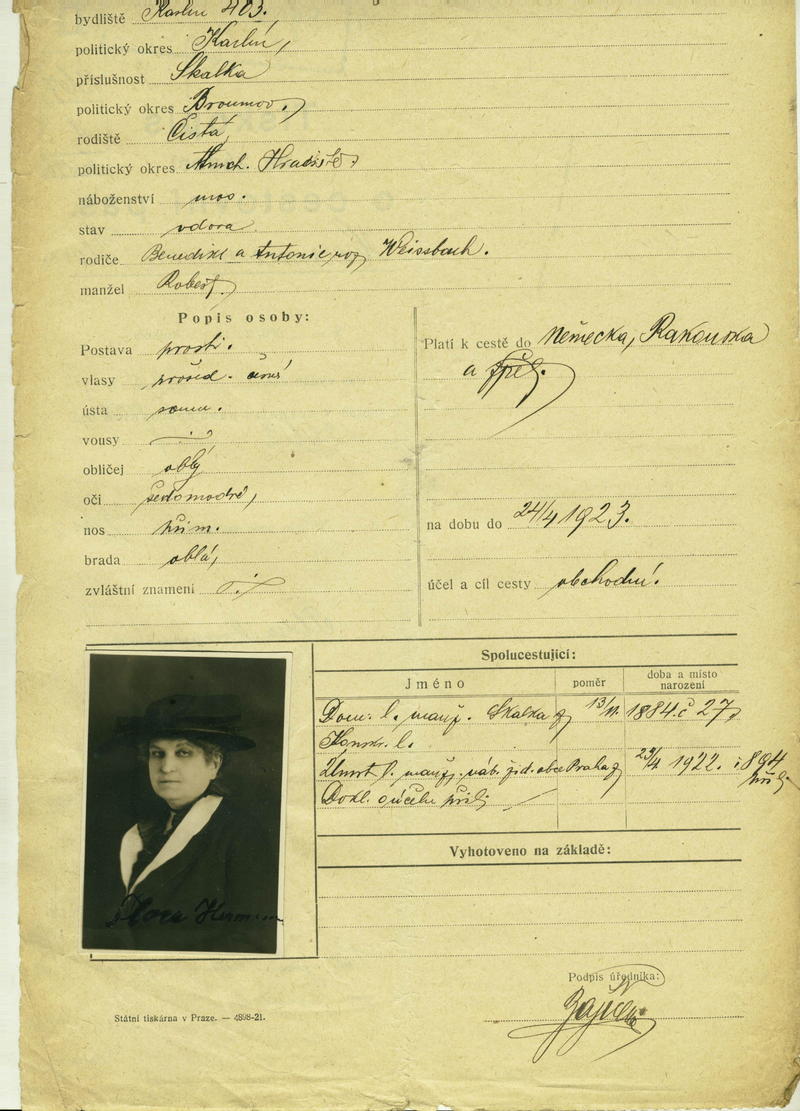 bydliště Karlín 403.
politický okres Karlín,
příslušnost Skalka
politický okres Broumov.
rodiště Čistá,
politický okres Mnich. Hradiště
náboženství mos.
stav vdova
rodiče Benedikt a Antonie roz. Weissbach.
manžel Robert
Popis osoby:
Postava prostř.
vlasy prošed. černé
ústa soum.
vousy
obličej oblý
oči šedomodré,
nos přim.
brada oblá,
zvláštní znamení
Platí k cestě do Německa, Rakouska
a
na dobu do 24/4 1923.
účel a cíl cesty obchodní.
Spolucestující:
Jméno poměr doba a místo narození
Dom. l. manž. Skalka 13/11 1884 č 27
Konskr. l.
Úmrt. l. manž. náb. žid. obce Praha 1922.
Dokl. o účelu přilž
Vyhotoveno na základě:
Podpis úředníka:
Státní tiskárna v Praze. — 4898-21.